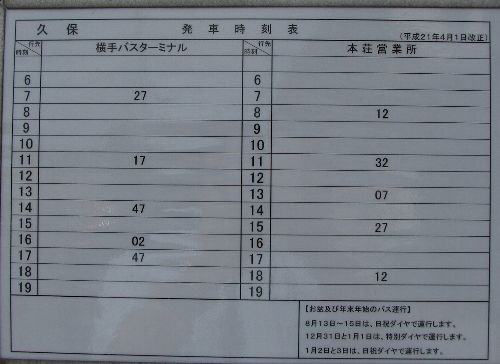 久保 発車時刻表
(平成21年4月1日改正)
行先 時刻 横手バスターミナル 行先 時刻 本荘営業所
6 6
7 27 7
8 8 12
9 9
10 10
11 17 11 32
12 12
13 13 07
14 47 14
15 15 27
16 02 16
17 47 17
18 18 12
19 19
【お盆及び年末年始のバス運行】
8月13日～15日は、日祝ダイヤで運行します。
12月31日と1月1日は、特別ダイヤで運行します。
1月2日と3日は、日祝ダイヤで運行します。